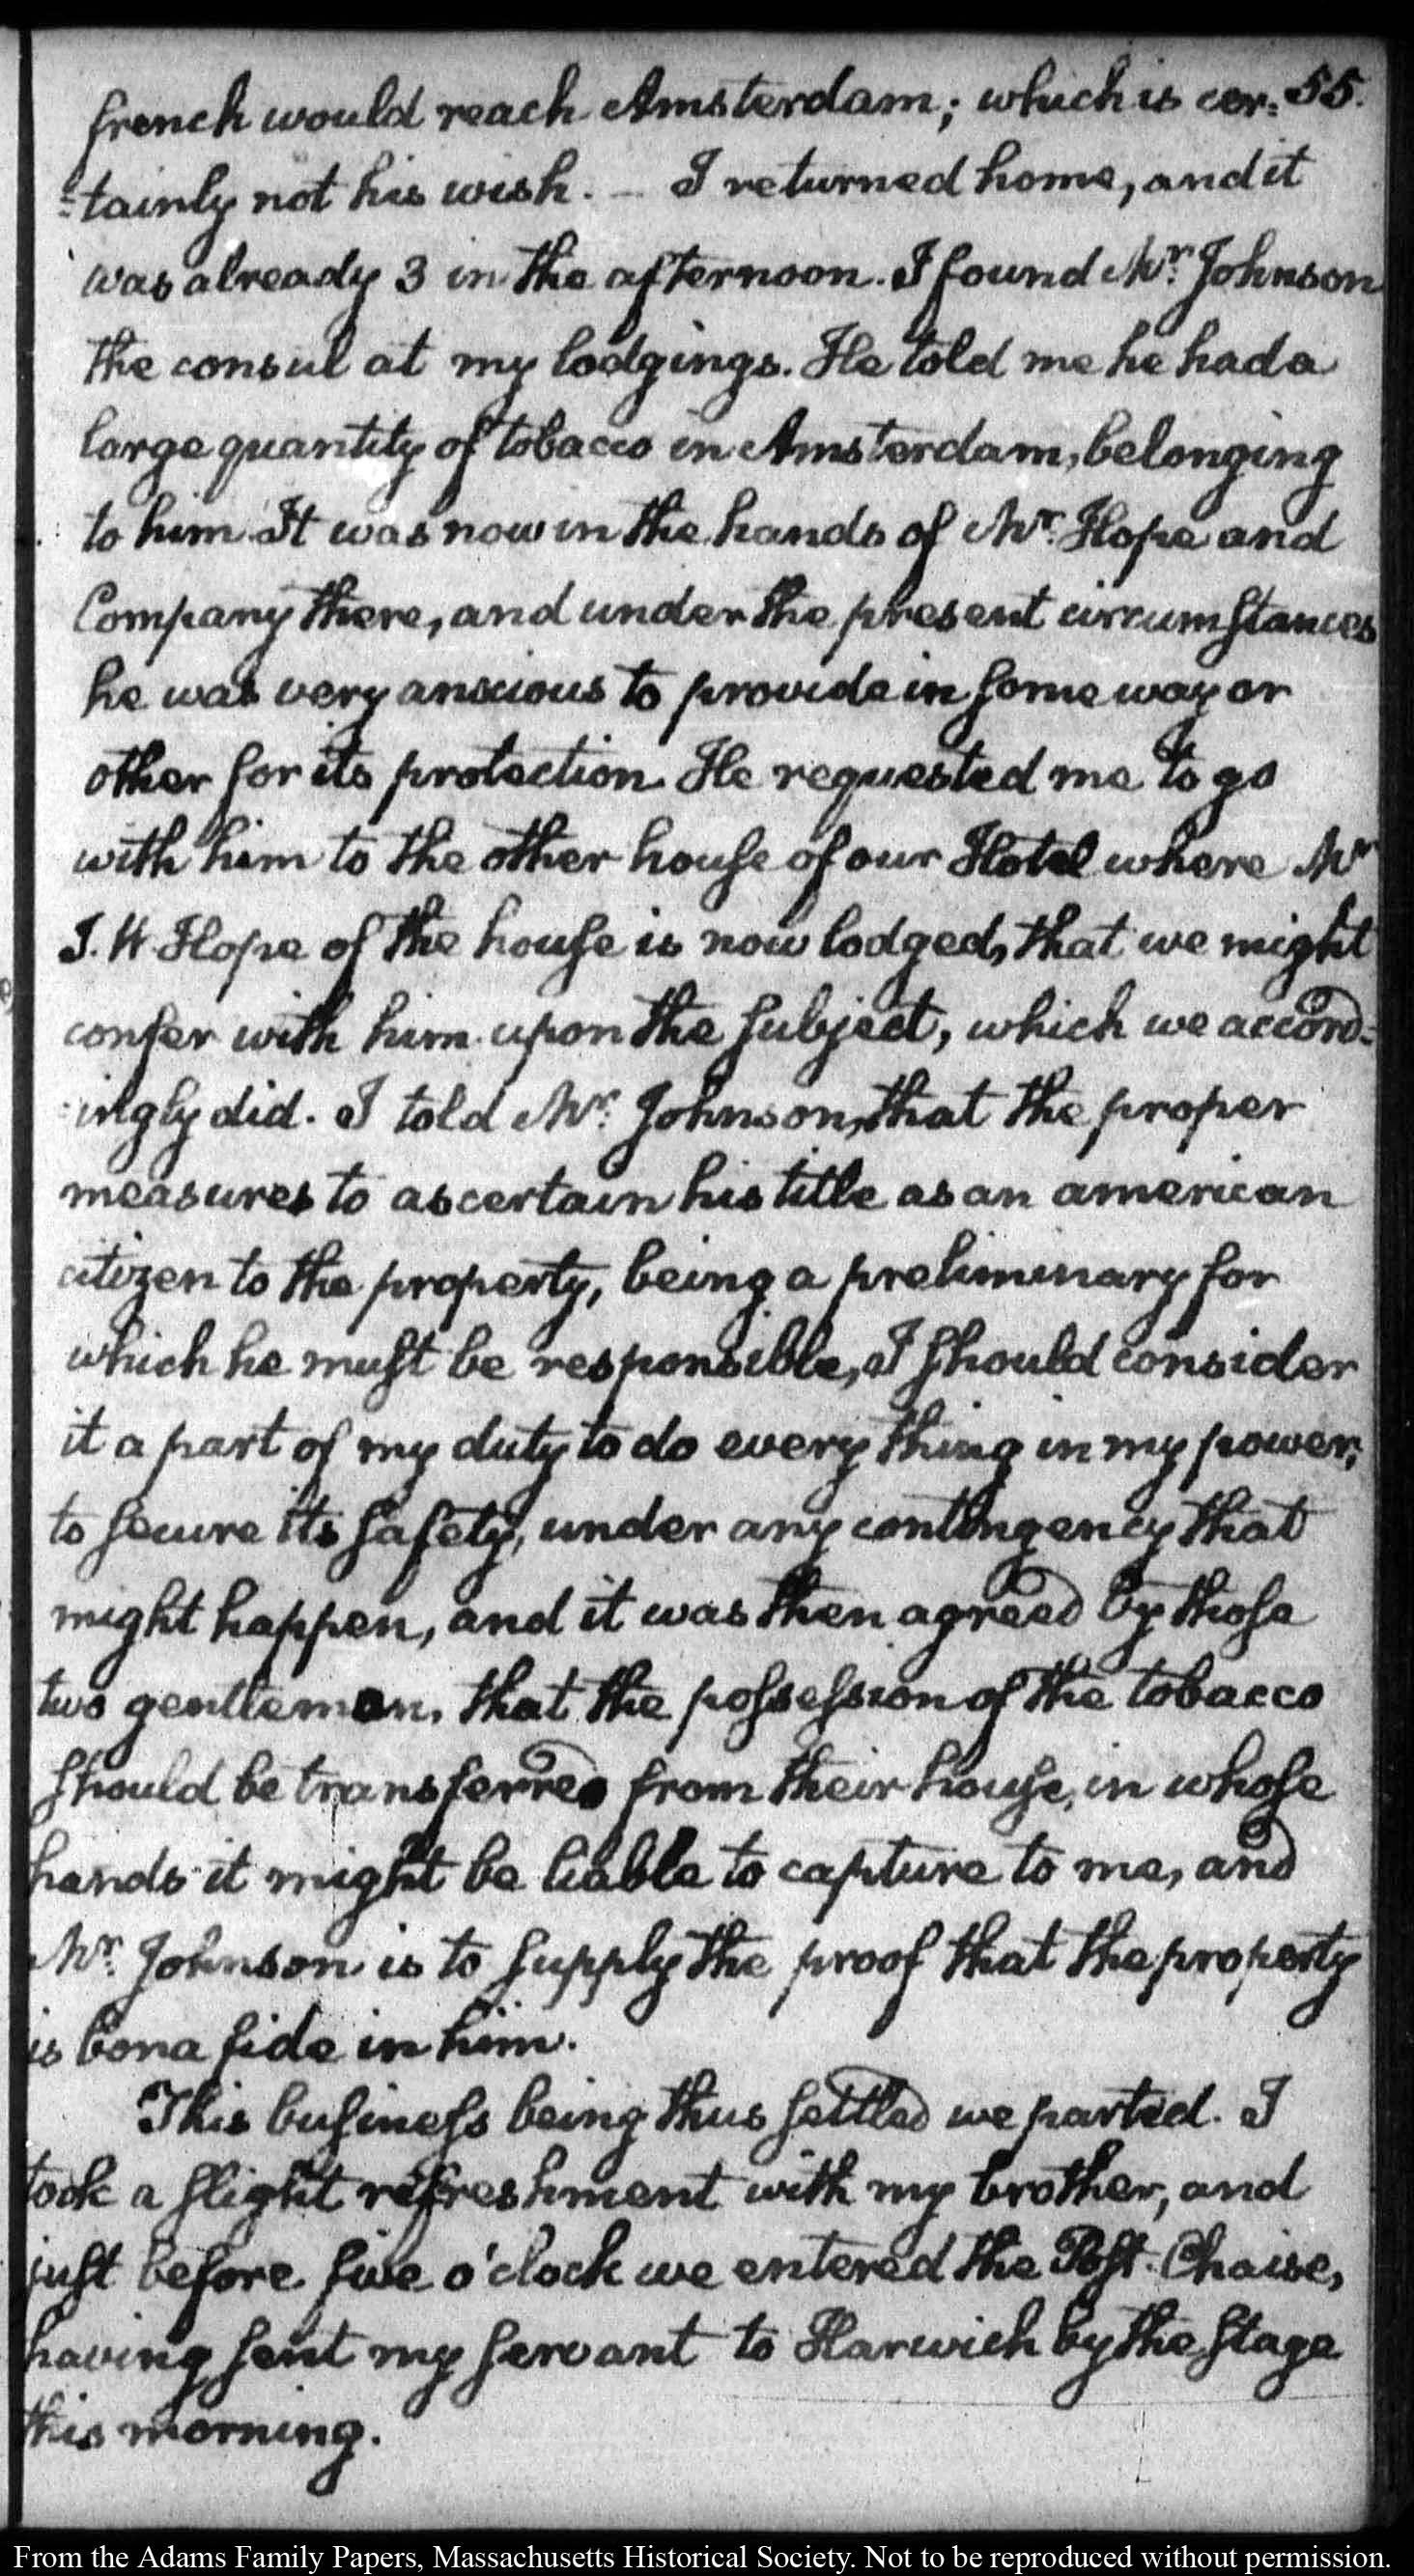 french would reach Amsterdam; which is cer= 55.
=tainly not his wish. — I returned home, and it
was already 3 in the afternoon. I found Mr. Johnson
the consul at my lodgings. He told me he had a
large quantity of tobacco in Amsterdam, belonging
to him. It was now in the hands of Mr. Hope and
Company there, and under the present circumstances
he was very anxious to provide in some way or
other for its protection. He requested me to go
with him to the other house of our Hotel where Mr
J. W. Hope of the house is now lodged, that we might
confer with him upon the subject, which we accord=
=ingly did. I told Mr. Johnson, that the proper
measures to ascertain his title as an american
citizen to the property, being a preliminary for
which he must be responsible, I should consider
it a part of my duty to do every thing in my power,
to secure its safety, under any contingency that
might happen, and it was then agreed by those
two gentlemen, that the possession of the tobacco
should be transferred from their house, in whose
hands it might be liable to capture to me, and
Mr. Johnson is to supply the proof that the property
is bona fide in him.
This business being thus settled we parted. I
took a slight refreshment with my brother, and
just before five o'clock we entered the Post-Chaise,
having sent my servant to Harwich by the stage
this morning.
From the Adams Family Papers, Massachusetts Historical Society. Not to be reproduced without permission.